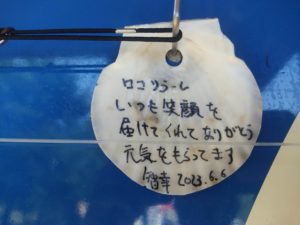 ロコソラーレ
いつも笑顔を
届けてくれてありがとう
元気をもらってます
智幸 2023.6.6